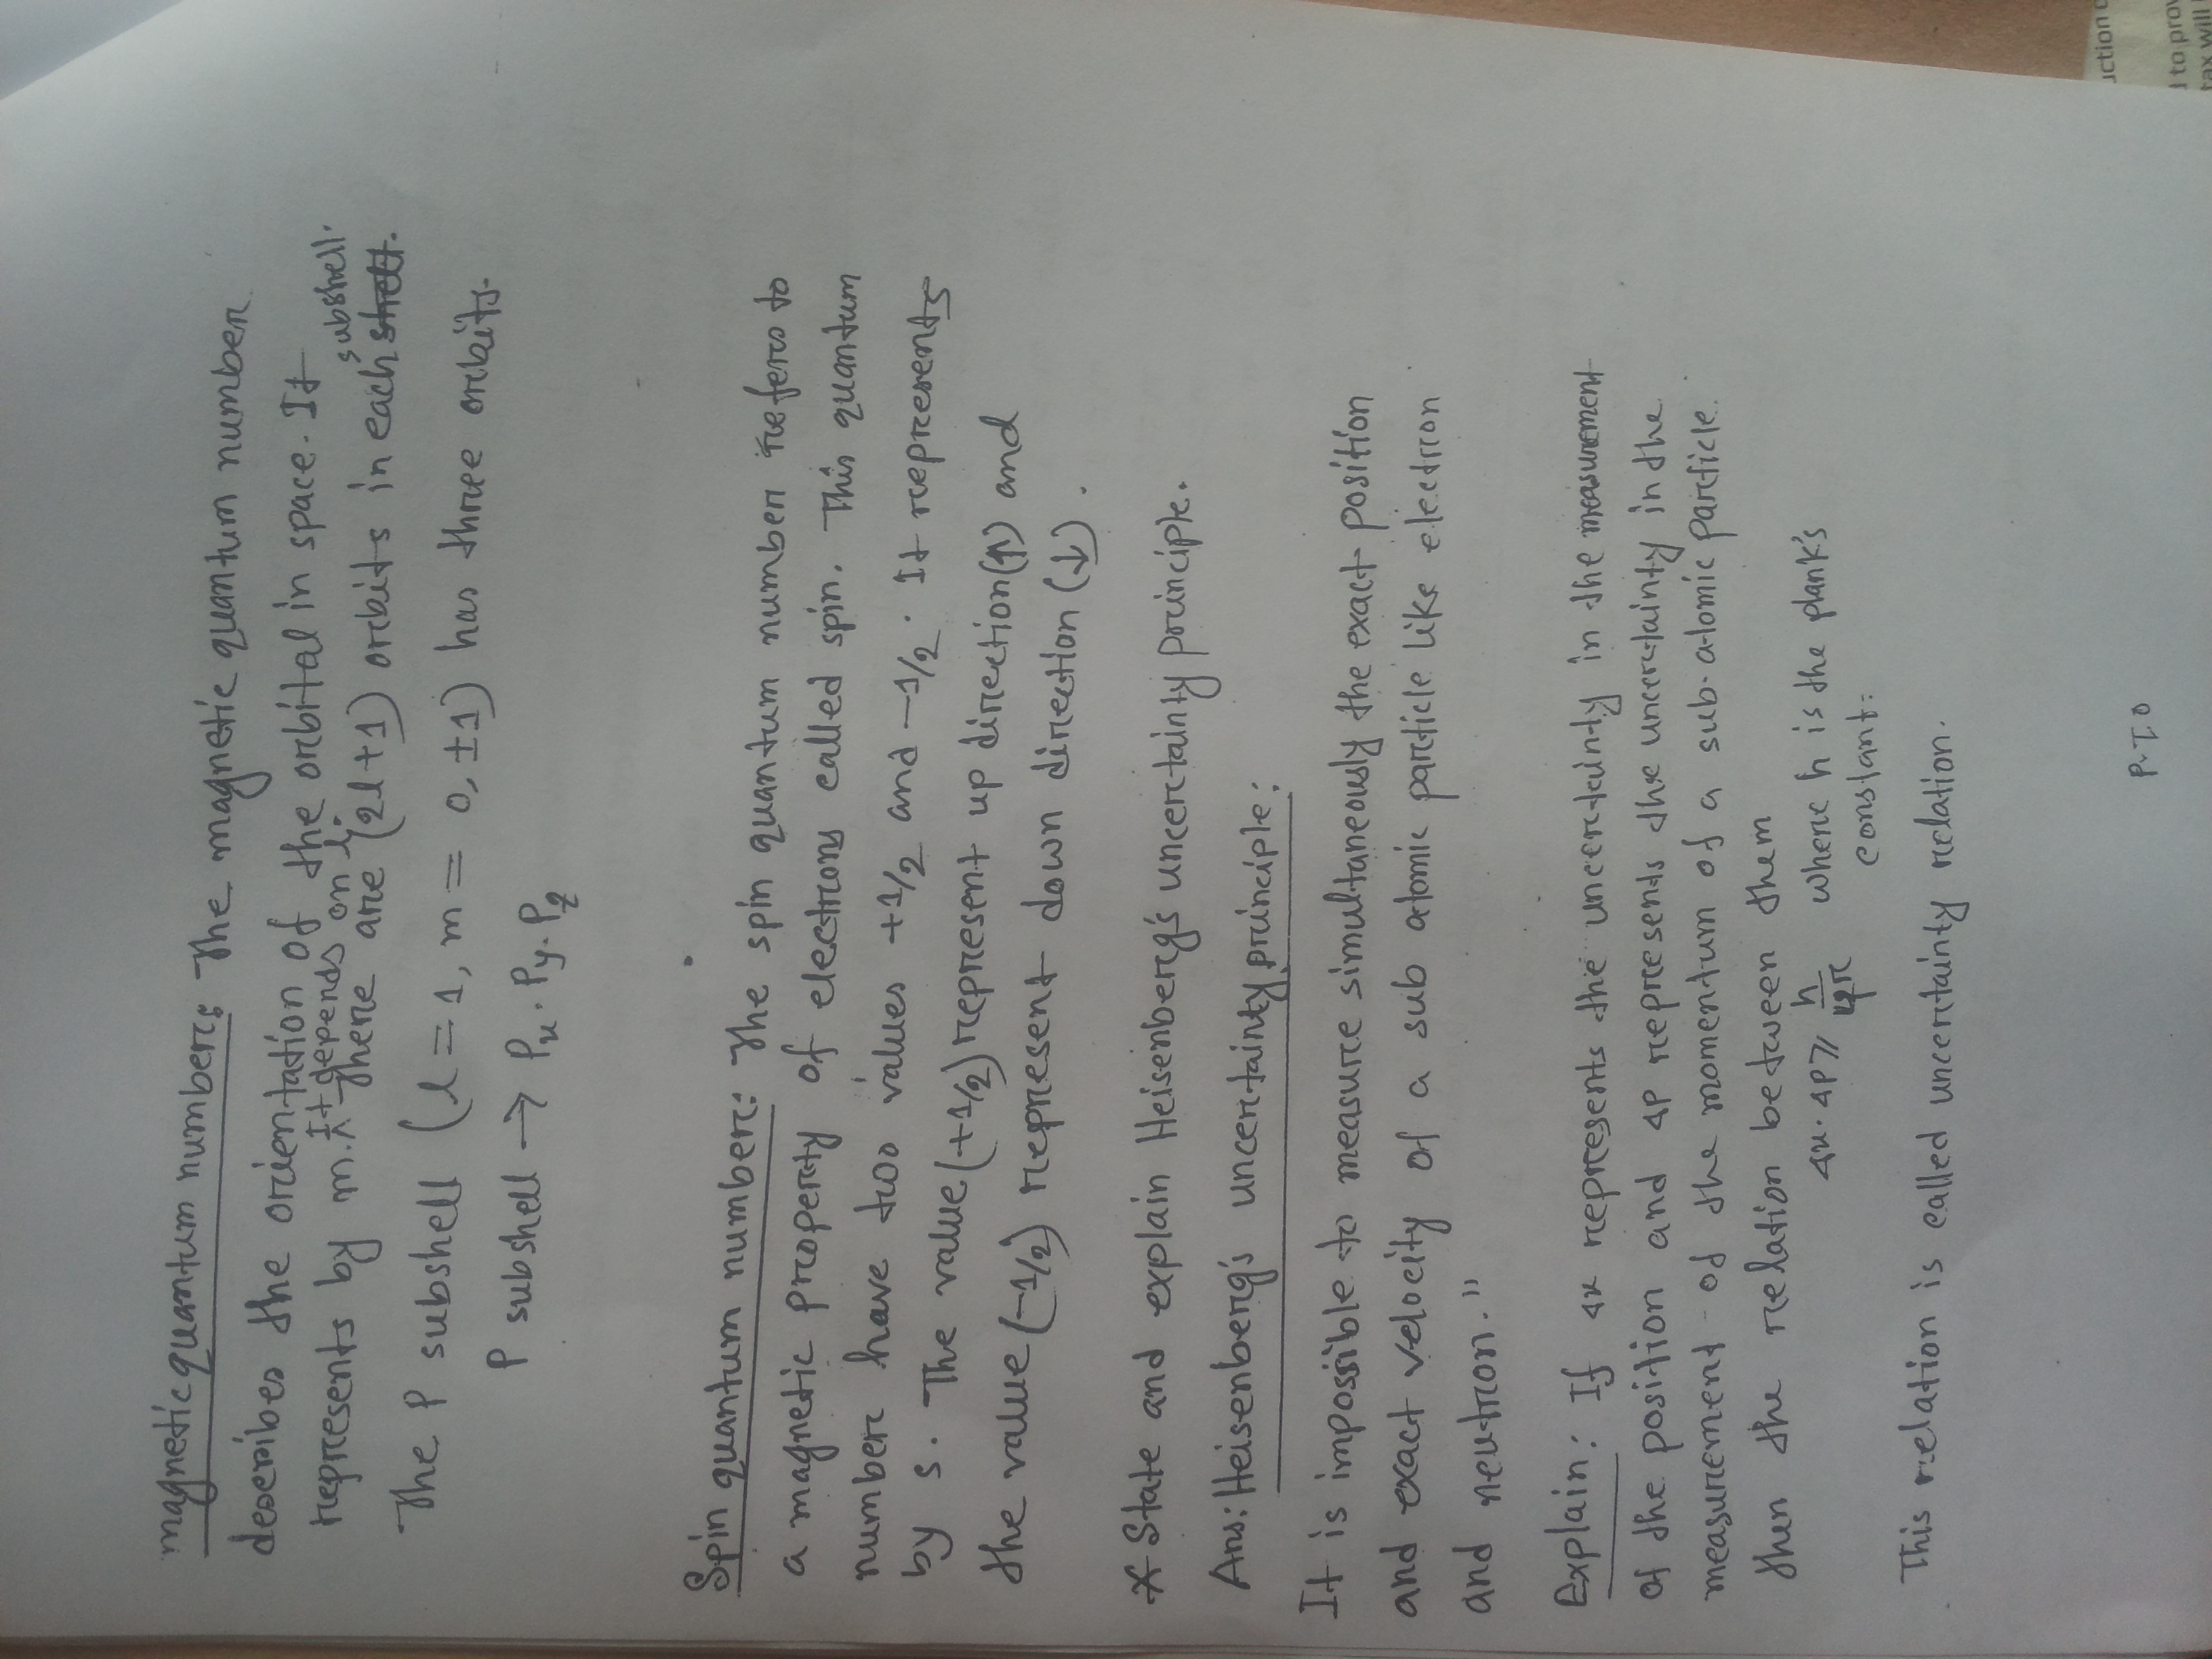 magnetic quantum number: The magnetic quantum number
describes the orientation of the orbital in space. It
represents by m. It depends on l. There are (2l+1) orbits in each subshell.
The P subshell (l = 1, m = 0, ±1) has three orbits.
P subshell → Px. Py. Pz
Spin quantum number: The spin quantum number refers to
a magnetic property of electrons called spin. This quantum
number have two values +1/2 and -1/2. It represents
by s. The value (+1/2) represent up direction (↑) and
the value (-1/2) represent down direction (↓).
* State and explain Heisenberg's uncertainty principle.
Ans: Heisenberg's uncertainty principle:
It is impossible to measure simultaneously the exact position
and exact velocity of a sub atomic particle like electron
and neutron."
Explain: If Δx represents the uncertainty in the measurement
of the position and ΔP represents the uncertainty in the
measurement of the momentum of a sub-atomic particle.
then the relation between them
Δx. ΔP ≥ h/4π where h is the plank's
constant.
This relation is called uncertainty relation.
P.T.O
uction
to prov
tax will